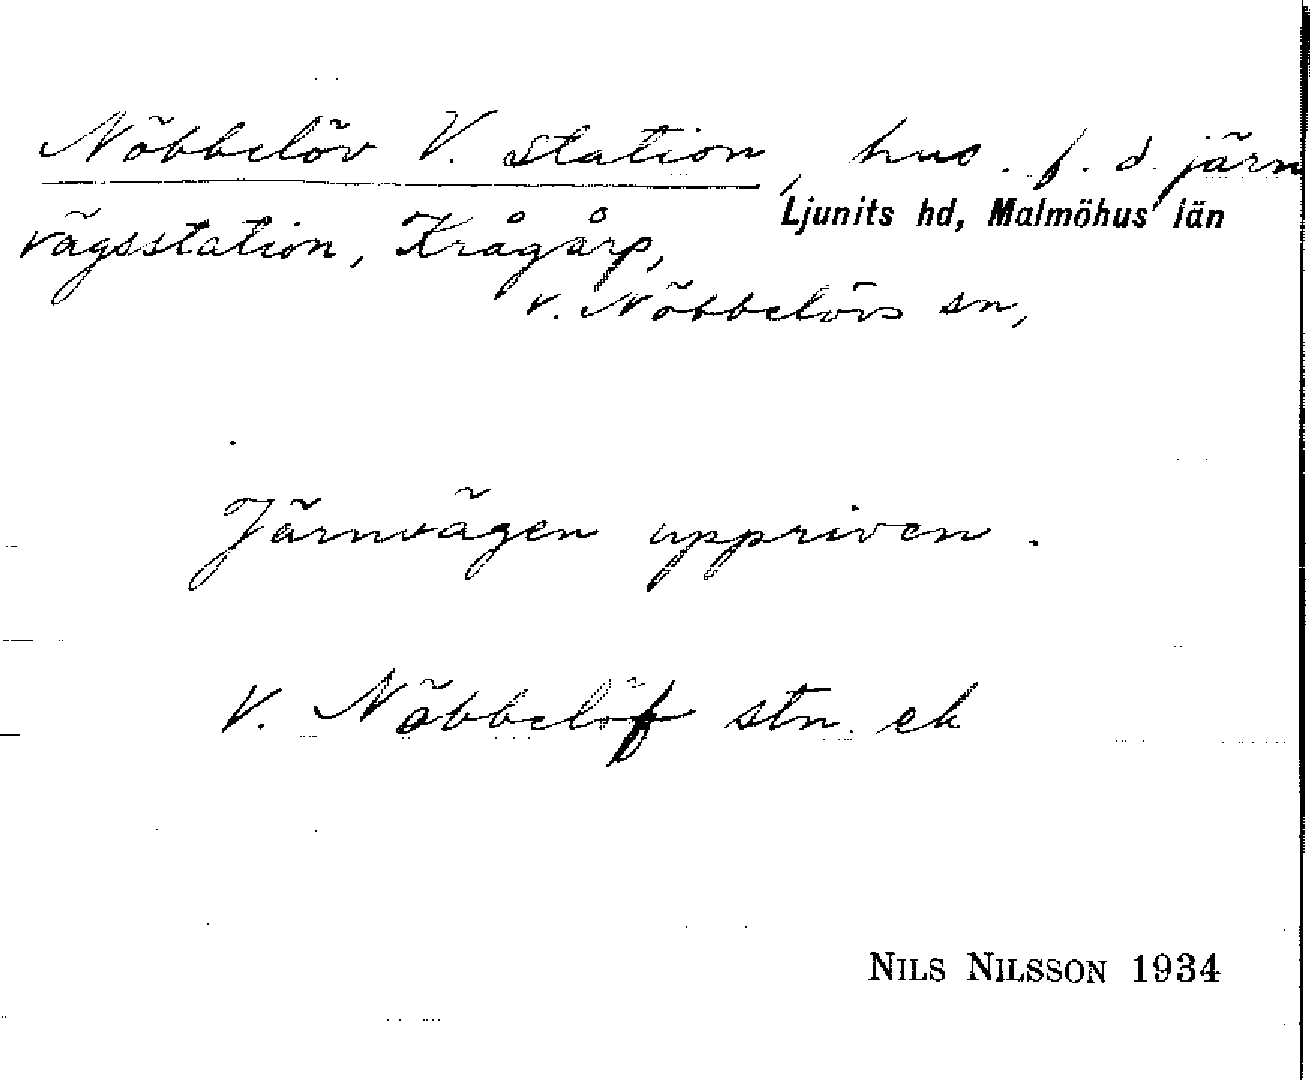 Nöbbelöv V. station, hus. f. d. järn
vägsstation, Krågårp,
Ljunits hd, Malmöhus län
V. Nöbbelövs sn,
Järnvägen uppriven.
V. Nöbbelöf stn. ek
NILS NILSSON 1934